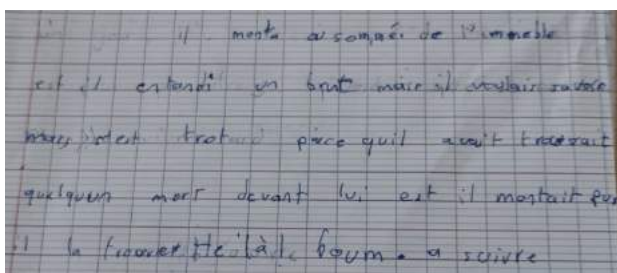 il monta a sommei de l'immeble
est il entandi un bruit mais il voulait savoir
mais trot pièce quil avait
quelquun mort devant lui est il montait
il la trouver Heilà boum. a suivre